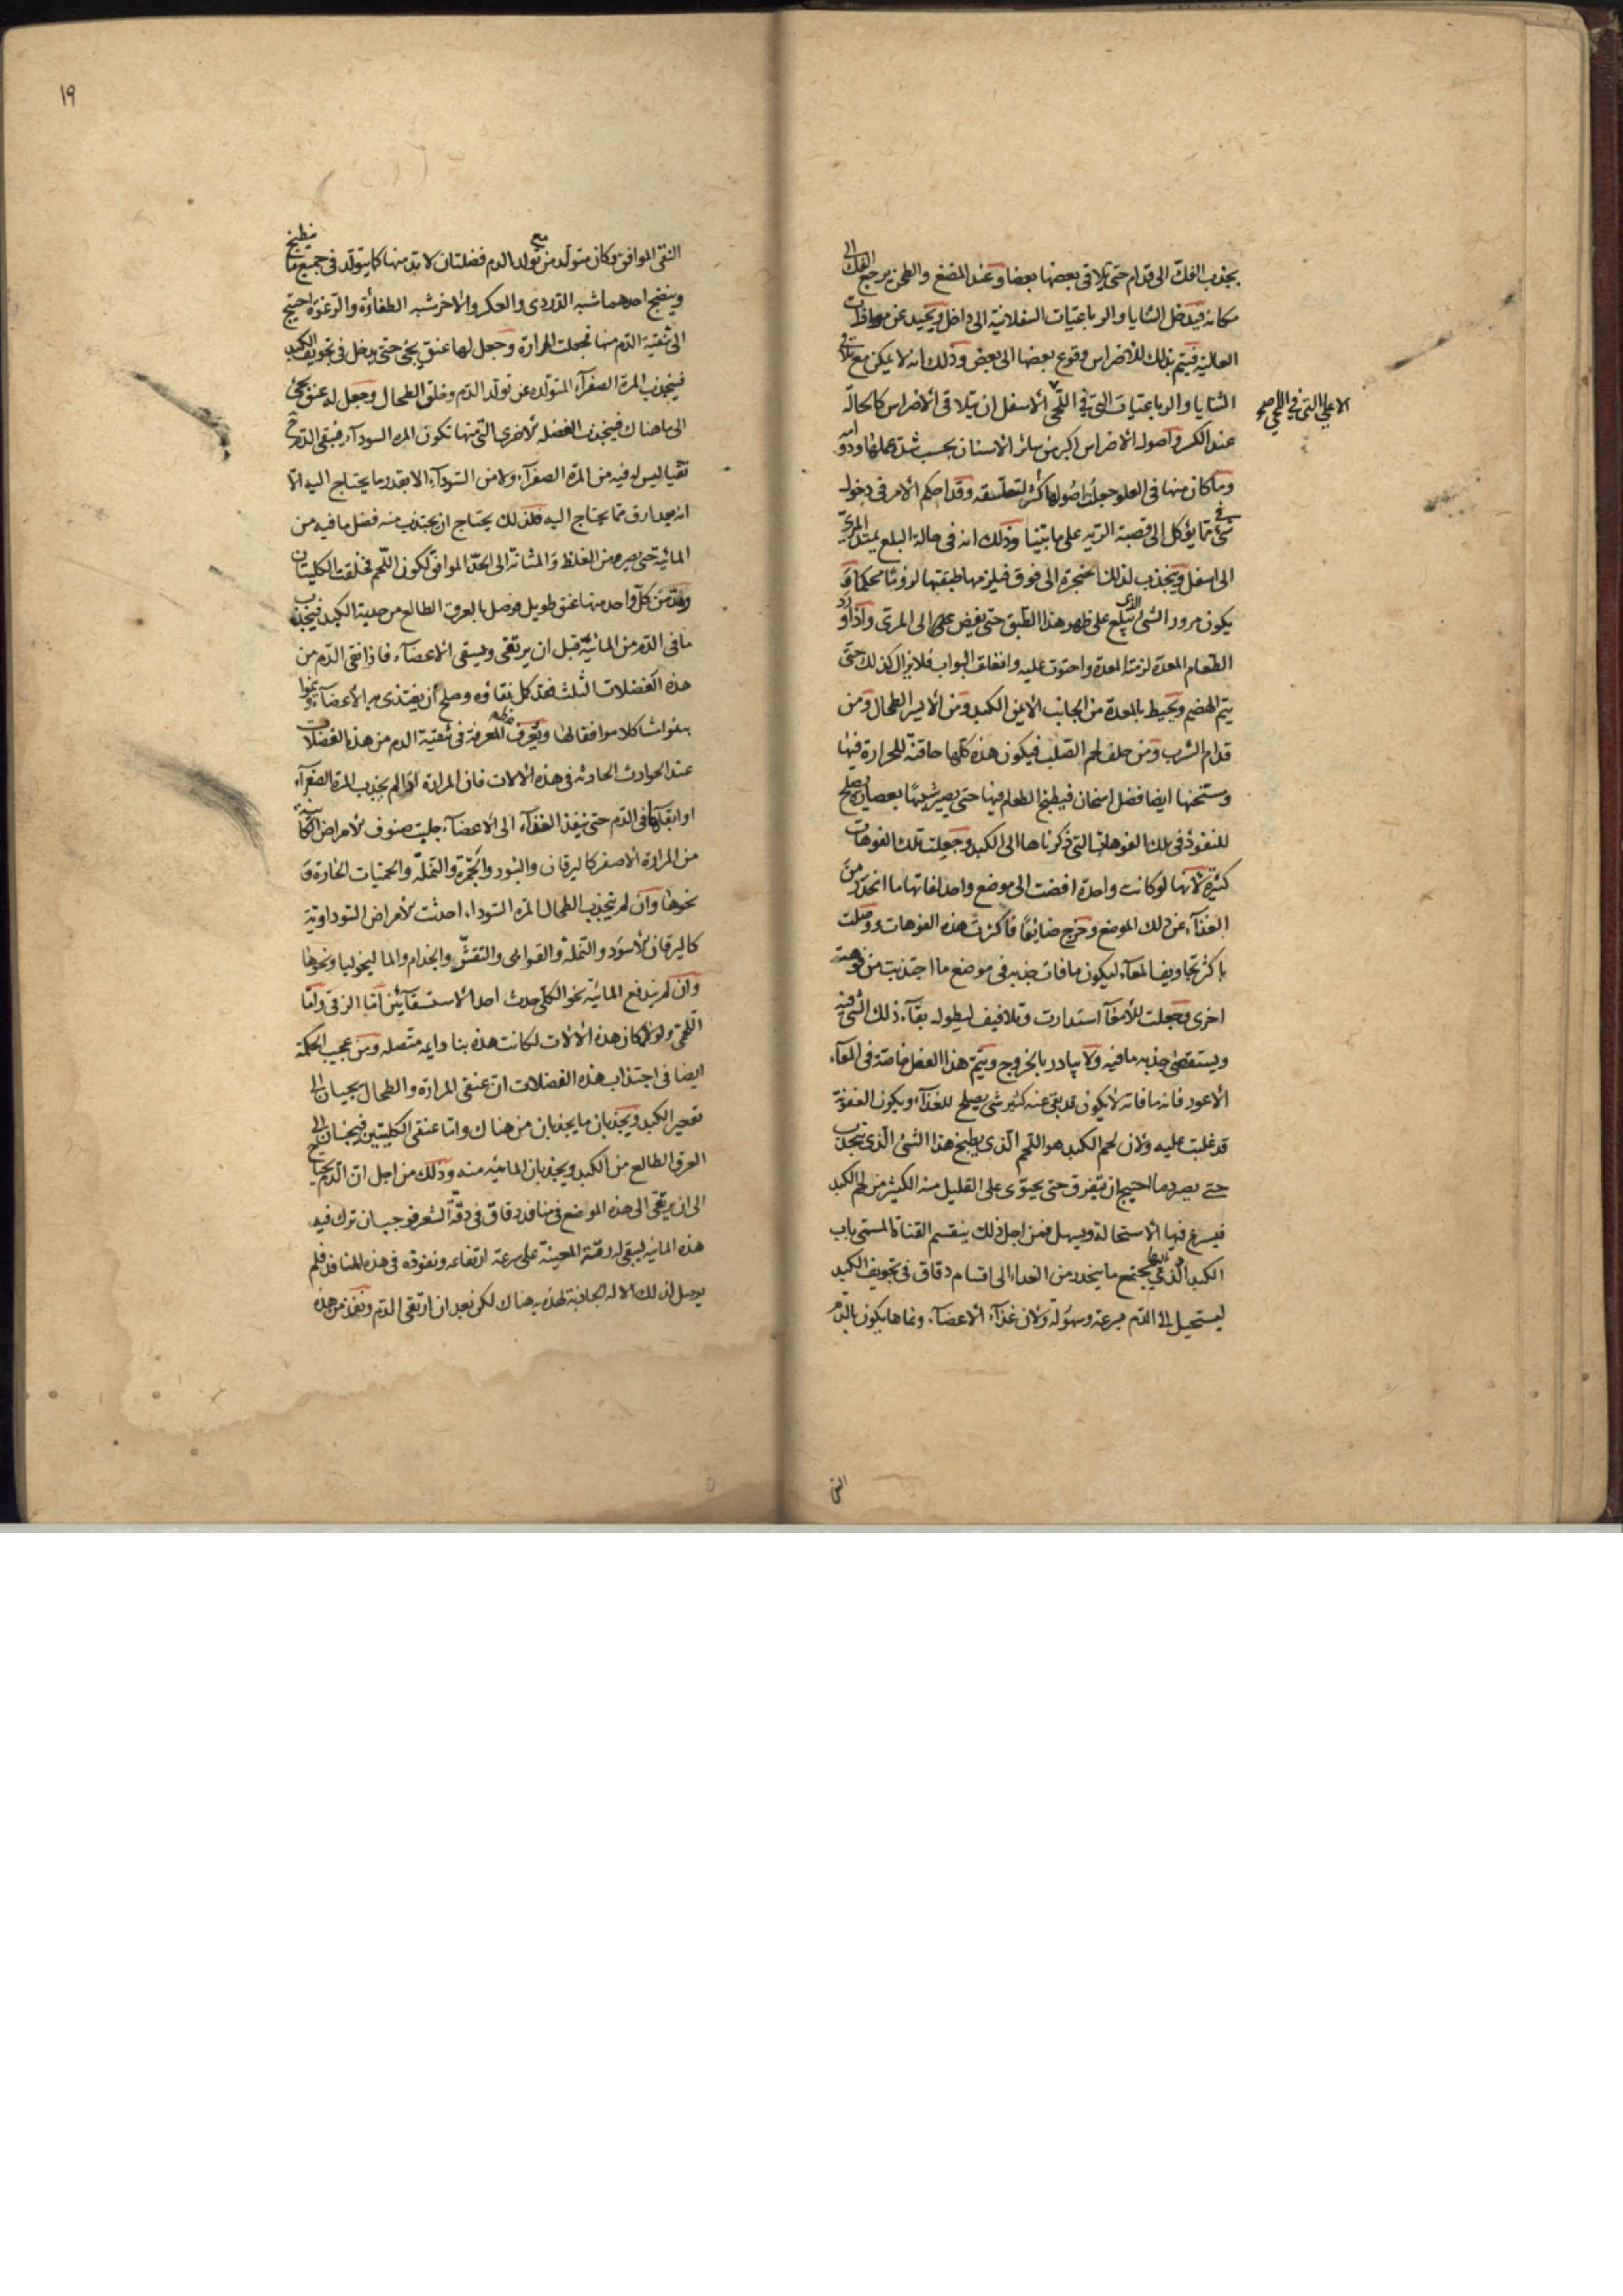 يجذب الفكّ الى قدام حتى يلاقى بعضها بعضا وعند المضغ والطحن يرجع الفك الى
مكانه فيدخل الثنايا والرباعيّات السفلانية الى داخل ويحيد عن موازات
العالية فيتم بذلك للاضراس وقوع بعضها الى بعض وذلك انه لا يمكن مع تلاقى
الثنايا والرباعيّات التى فى اللحى الاسفل ان يتلاقى الاضراس كالحالّة
الاعلى التى فى اللحى صح
عند الكسر واصول الاضراس اكبر من سائر الاسنان بحسب شدة عملها ودوامه
وما كان منها فى العلو جعلت اصولها اكثر لتعلّقه وقد احكم الامر فى دخول
شئ مما يؤكل الى قصبة الريه على ما بيّنا وذلك انه فى حالة البلع يمتد المرئ
الى اسفل وينجذب لذلك الحنجرة الى فوق فيلزمها طبقتها لزومًا محكما و
يكون مرور الشئ الذى يبلع على ظهر هذا الطبق حتى يفيض الى المرى واذا ورد
الطعام المعدة لزمته المعدة واحتوت عليه وانغلق البواب فلا يزال كذلك حتى
يتم الهضم ويحيط بالمعدة من الجانب الايمن الكبد ومن الايسر الطحال ومن
قدام الثرب ومن خلف لحم الصلب فيكون هذه كلّها حاقنة للحرارة فيها
ومسخنها ايضا فضل اسخان فيطبخ الطعام فيها حتى يصير شبيهًا بعصارة يصلح
للنفوذ فى تلك الفوهات التى ذكرناها الى الكبد وجعلت تلك الفوهات
كثيرة لانها لو كانت واحدة افضت الى موضع واحد لفاتها ما انحدر من
الغذآء عن ذلك الموضع وخرج ضائعًا فاكثرت هذه الفوهات ووصلت
باكثر تجاويف المعآء ليكون ما فات جذبه فى موضع ما اجتذبت من فوهة
اخرى وجعلت للأمعآ استدارت وتلافيف ليطول بقآء ذلك الشئ فيه
ويستقصى جذب ما فيه ولا يبادر بالخروج ويتم هذا الفعل خاصّة فى المعآء
الاعور فانه ما فاته لا يكون قد بقى عنه كثير شئ يصلح للغذآء ويكون العفونة
قد غلبت عليه ولان لحم الكبد هو اللحم الّذى يطبخ هذا الشئ الّذى ينجذب
حتى يصير دما احتيج ان يتفرق حتى يحتوى على القليل منه الكثير من لحم الكبد
فيسرع فيها الاستحالة ويسهل فمن اجل ذلك ينقسم القناة المسمى باب
الكبد الّذى فيه يجتمع ما ينحدر من الغداء الى اقسام دقاق فى تجويف الكبد
ليستحيل الى الدّم بسرعة وسهولة ولان غذآء الاعضآء ونماها يكون بالدّم
النقى
١٩
النقى الموافق وكان متولّد من تولد الدم فضلتان لا بدّ منها كما يتولّد فى جميع ما ينطبخ
وينضج احدهما شبه الدّردى والعكر والآخر شبه الطفاؤة والرّغوة احتيج
الى تنقية الدّم منها فجعلت المرارة وجعل لها عنق يجئ حتى يدخل فى تجويف الكبد
فيجذب المرّة الصفرآء المتولّده عن تولّد الدّم وخلق الطحال وجعل له عنق يجئ
الى ما هناك فيجذب الفضله الاخرى التى منها تكون المره السودآء فيبقى الدّم ح
نقيا ليس له فيه من المرّة الصفرآء ولا من السّودآء الا بقدر ما يحتاج اليه الّا
انه بعد ارق مما يحتاج اليه فلذلك يحتاج ان يجتذب منه فضل ما فيه من
المائيّة حتى يصير من الغلظ والمتانة الى الحدّ الموافق لكون اللّحم فخلقت الكليتان
ومدّ من كلّ واحد منها عنق طويل فوصل بالعرق الطالع من حدبة الكبد فيجذب
ما فى الدّم من المائيّة قبل ان يرتقى ويسقى الاعضآء فاذا نقى الدّم من
هذه الفضلات الثلث فقد كمل نقاؤه وصلح ان يغتذى به الأعضآء وينموا
بنموا مشاكلا موافقا لها ويعرف المعرفة فى تنقية الدم من هذه الفضلات
عند الحوادث الحادثه فى هذه الالات فان المرارة اذا لم يجذب المرة الصفرآء
او ابقتها فى الدّم حتى ينفذ الغذآء الى الاعضآء جلبت صنوف الامراض الكائنة
من المرارة الاصفر كاليرقان والبثور والحمرة والنّملة والحميات الحارة و
نحوها وان لم يجذب الطحال المره السوداء احدثت الامراض السّوداوية
كاليرقان الاسود والنّملة والقوابى والتقشّر والجذام والماليخوليا ونحوها
وان لم يندفع المائيّة نحو الكلى حدث احد الاستسقآئين امّا الزقى وامّا
اللّحمى ولولا مكان هذه الالات لكانت هذه بنا دايمه متّصله ومن عجيب الحكمة
ايضا فى اجتذاب هذه الفضلات ان عنقى المرارة والطحال يجيان الى
تقعير الكبد ويجذبان ما يجذبان من هناك وامّا عنقى الكليتين فيجئان الى
العرق الطالع من الكبد ويجذبان المائيه منه وذلك من اجل ان الدّم يحتاج
الى ان يرتقى الى هذه المواضع فى منافذ دقاق فى دقّة الشعر فوجب ان ترك فيه
هذه المائيه ليبقى له رقتة المعينة على سرعة ارتفاعه ونفوذه فى هذه المنافذ فلم
يوصل لذلك الاله الجاذبة لهذه به هناك لكن بعد ان ارتقى الدّم ونفذ من هذه